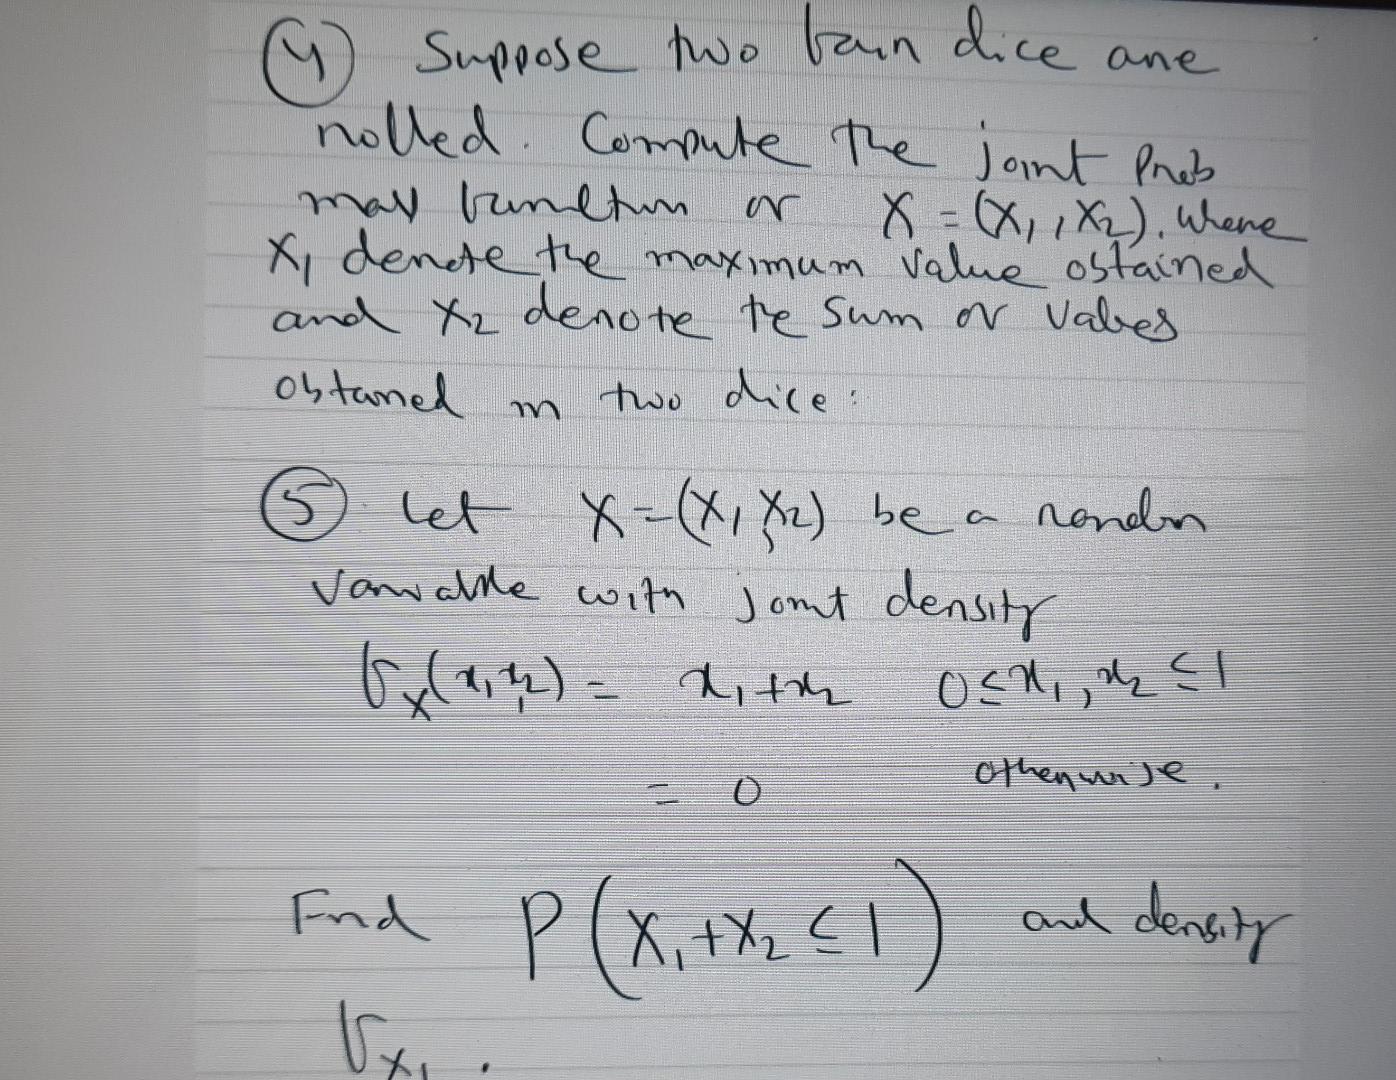 ④ Suppose two fair dice are
rolled. Compute the joint Prob
mass function of X = (X₁, X₂). Where
X₁ denote the maximum value obtained
and X₂ denote the sum of values
obtained in two dice.
⑤ Let X = (X₁, X₂) be a random
variable with joint density
f_X(x₁, x₂) = x₁ + x₂ 0 ≤ x₁, x₂ ≤ 1
= 0 otherwise.
Find P(X₁ + X₂ ≤ 1) and density
f_X₁.